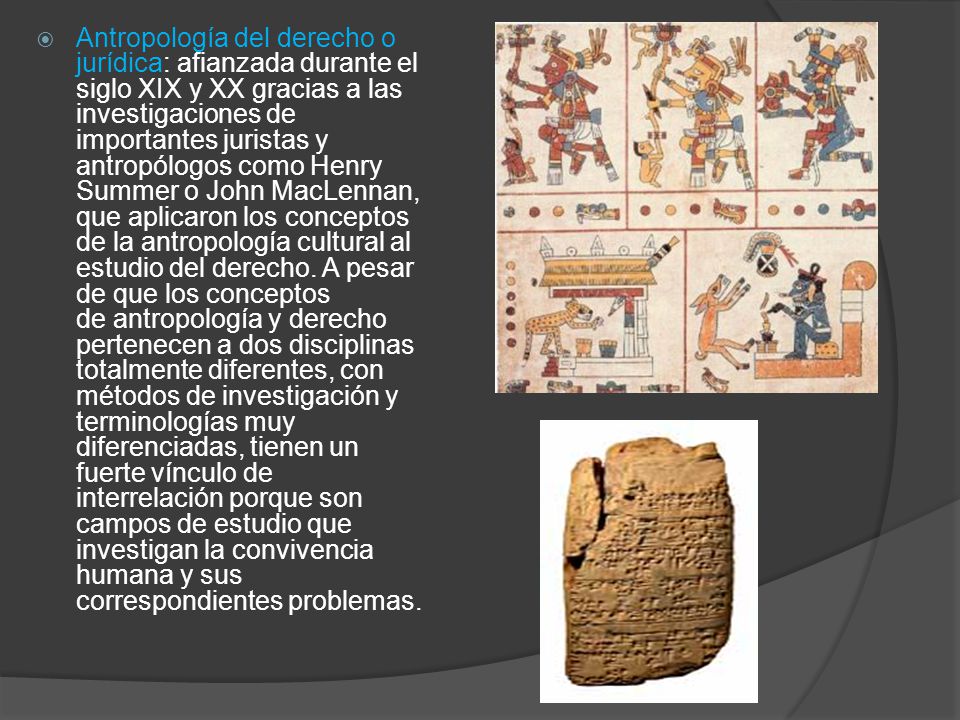 Antropología del derecho o
jurídica: afianzada durante el
siglo XIX y XX gracias a las
investigaciones de
importantes juristas y
antropólogos como Henry
Summer o John MacLennan,
que aplicaron los conceptos
de la antropología cultural al
estudio del derecho. A pesar
de que los conceptos
de antropología y derecho
pertenecen a dos disciplinas
totalmente diferentes, con
métodos de investigación y
terminologías muy
diferenciadas, tienen un
fuerte vínculo de
interrelación porque son
campos de estudio que
investigan la convivencia
humana y sus
correspondientes problemas.